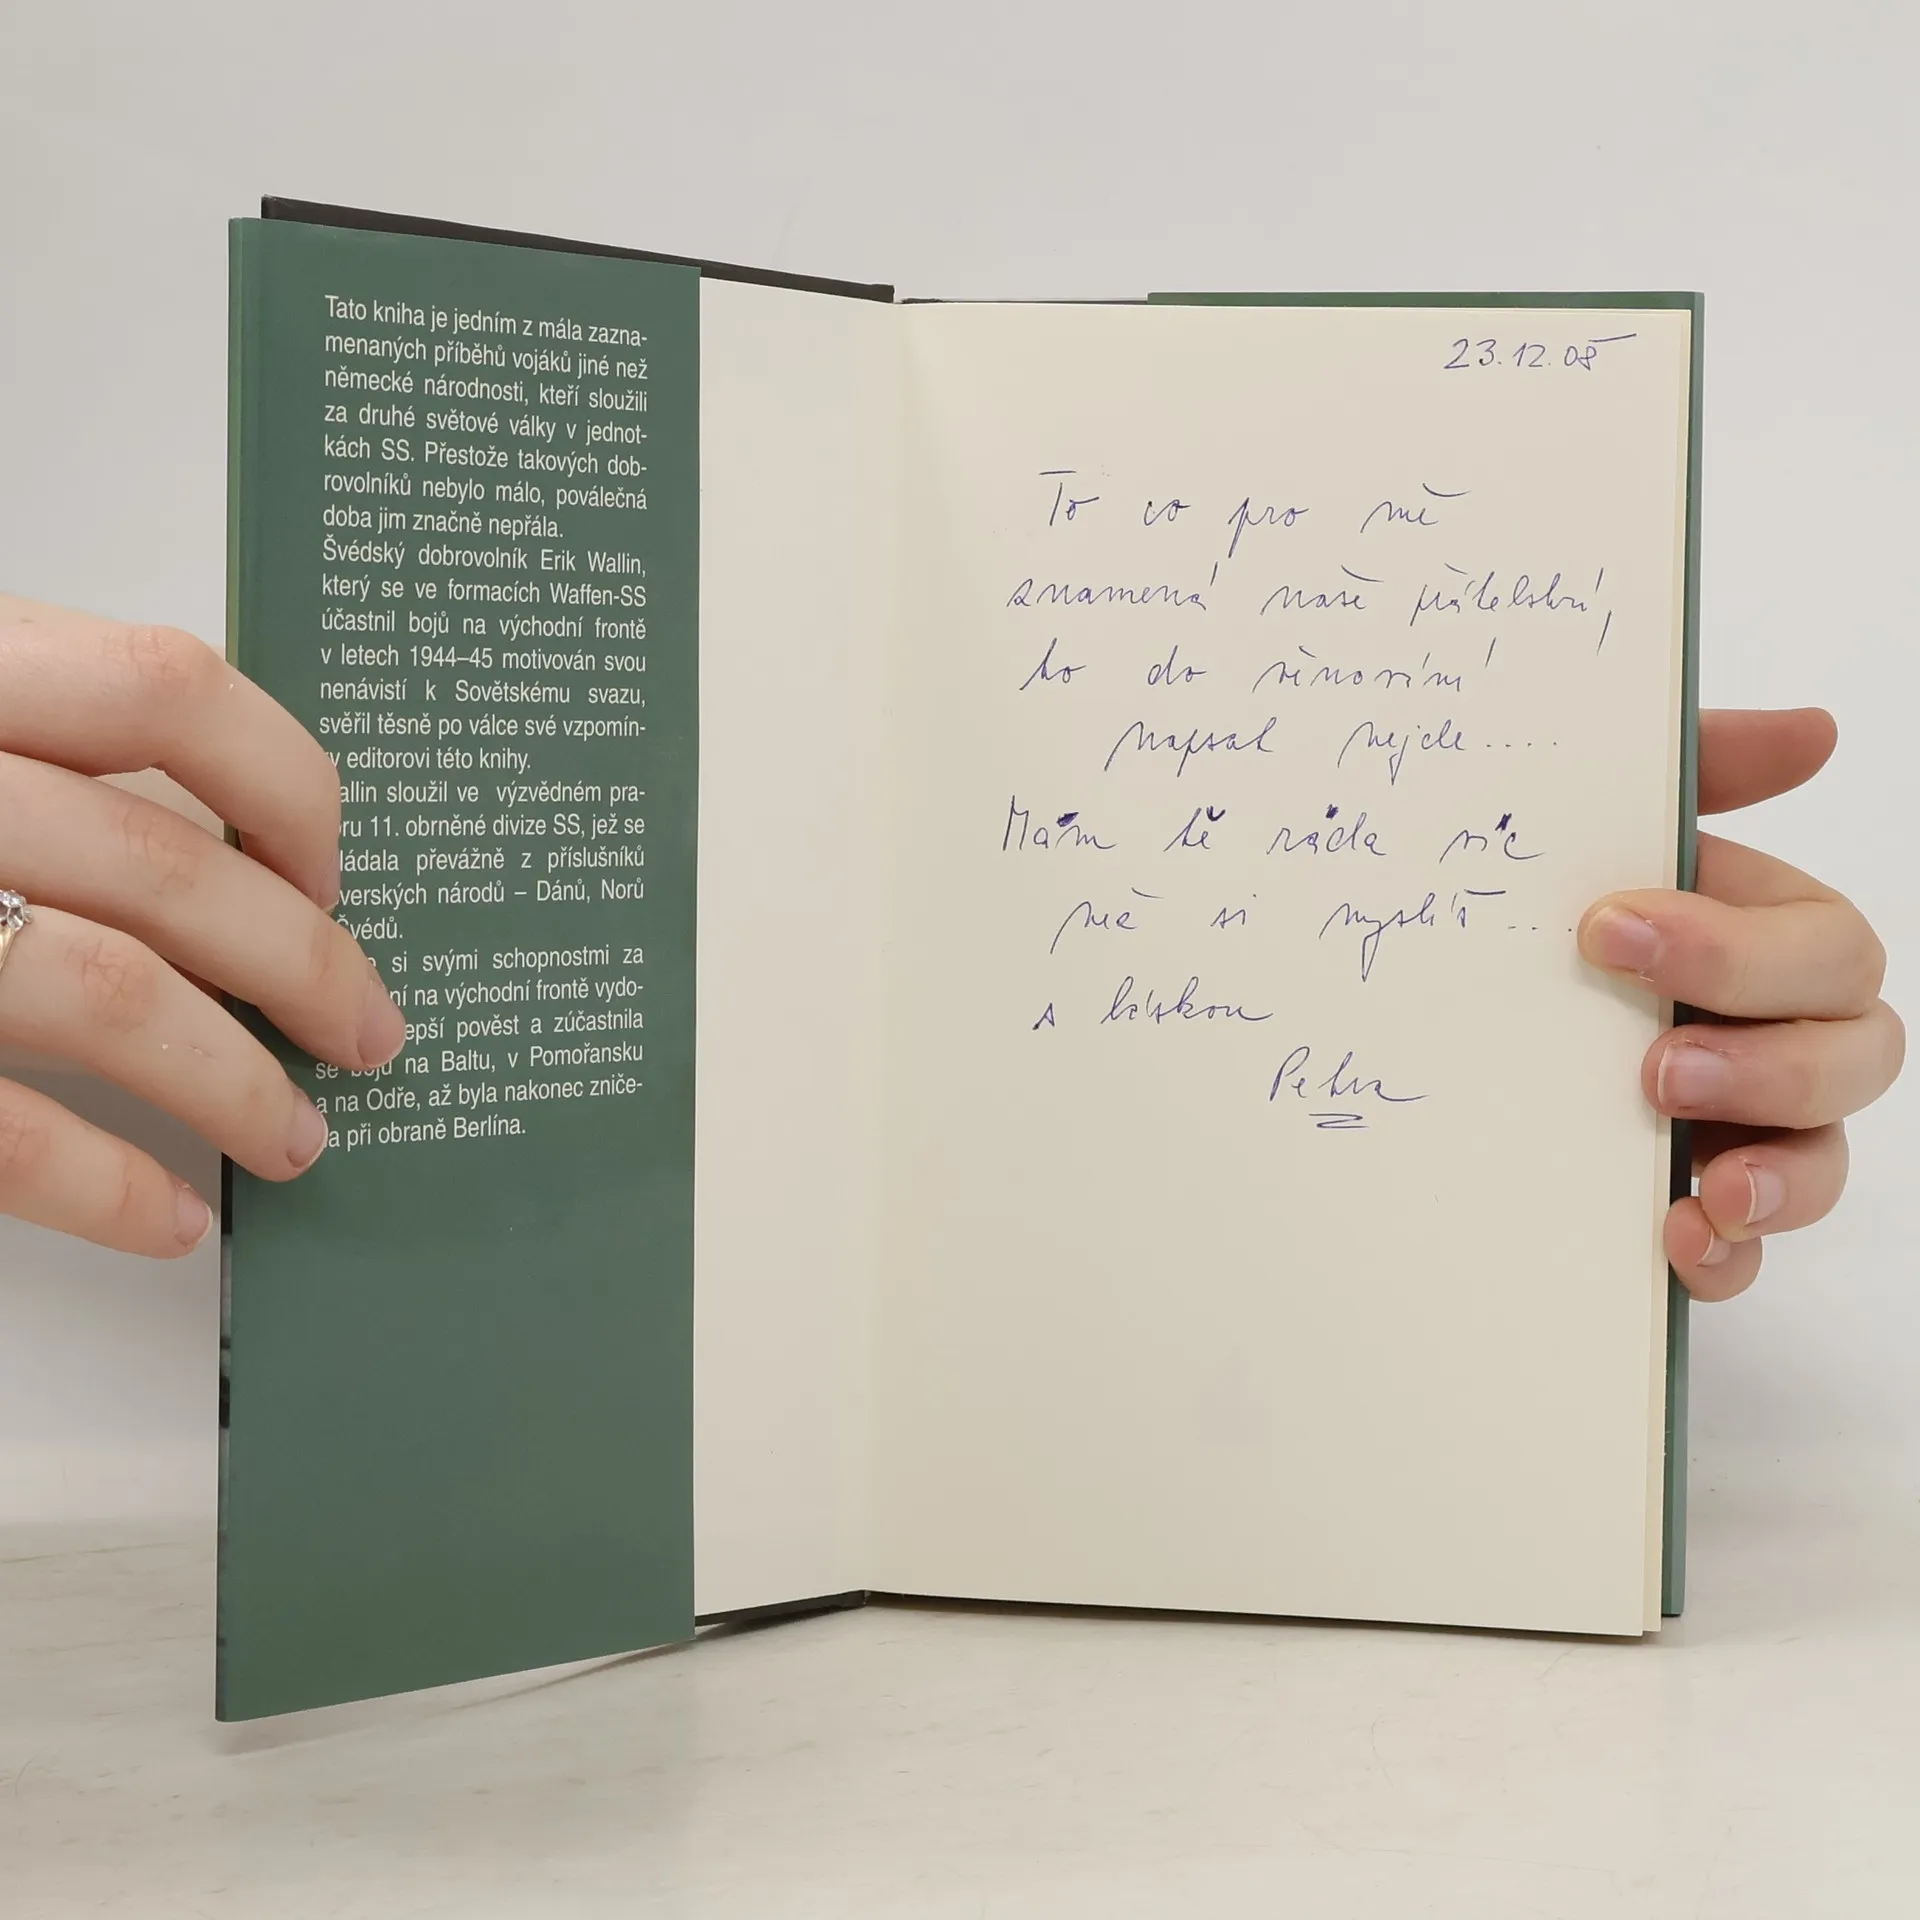 Tato kniha je jedním z mála zazna-
menaných příběhů vojáků jiné než
německé národnosti, kteří sloužili
za druhé světové války v jednot-
kách SS. Přestože takových dob-
rovolníků nebylo málo, poválečná
doba jim značně nepřála.
Švédský dobrovolník Erik Wallin,
který se ve formacích Waffen-SS
účastnil bojů na východní frontě
v letech 1944–45 motivován svou
nenávistí k Sovětskému svazu,
svěřil těsně po válce své vzpomín-
y editorovi této knihy.
allin sloužil ve výzvědném pra-
oru 11. obrněné divize SS, jež se
ládala převážně z příslušníků
verských národů – Dánů, Norů
Švédů.
si svými schopnostmi za
ní na východní frontě vydo-
epší pověst a zúčastnila
se bojů na Baltu, v Pomořansku
a na Odře, až byla nakonec zniče-
a při obraně Berlína.
23.12.05
To co pro mě
znamená naše přátelství,
to do věnování
napsat nejde....
Mám tě ráda víc
než si myslíš...
s láskou
Petra